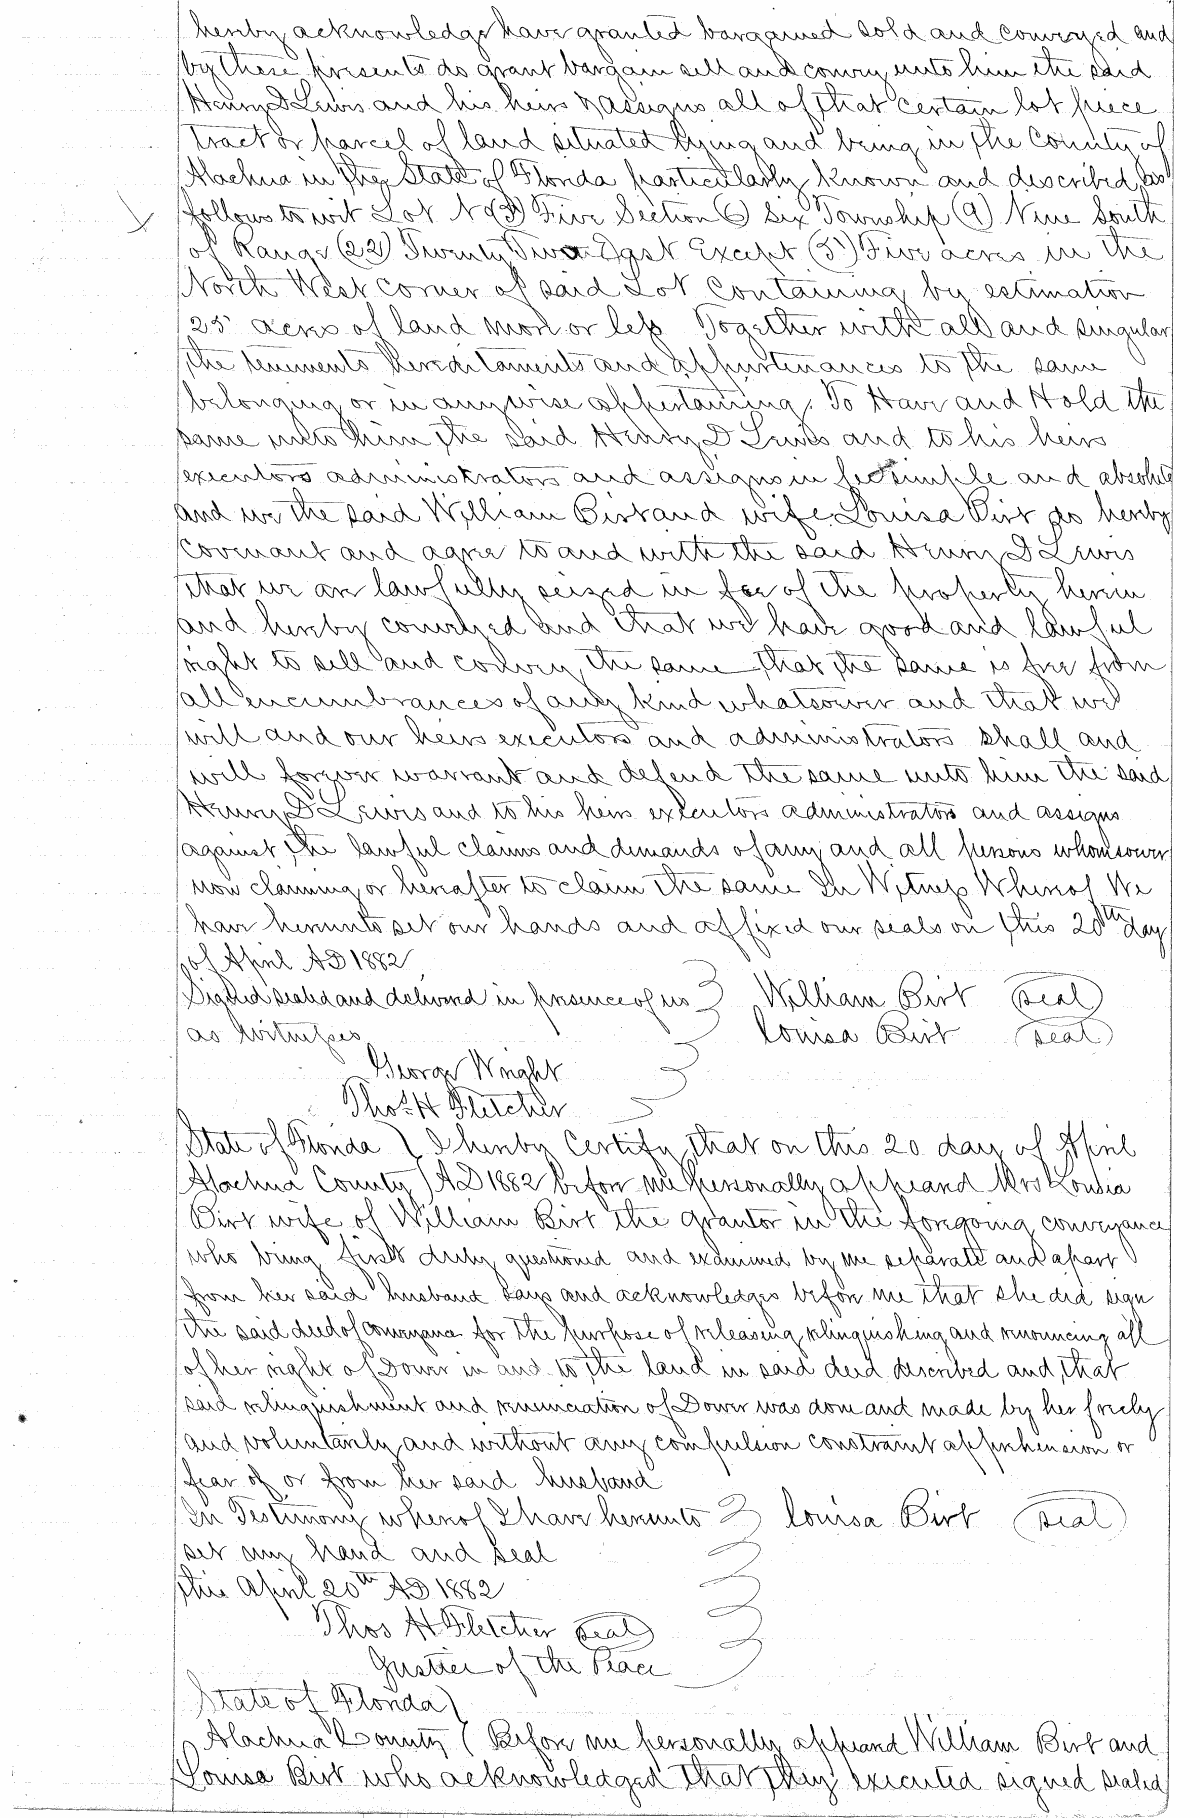 hereby acknowledge have granted bargained sold and conveyed and
by these presents do grant bargain sell and convey unto him the said
Henry D Lewis and his heirs & assigns all of that certain lot piece
tract or parcel of land situated lying and being in the County of
Alachua in the State of Florida particularly known and described as
follows to wit Lot No (5) Five Section (6) Six Township (9) Nine South
of Range (22) Twenty Two East Except (5) Five acres in the
North West corner of said Lot Containing by estimation
25 acres of land more or less Together with all and singular
the tenements hereditaments and appurtenances to the same
belonging or in anywise appertaining. To Have and Hold the
same unto him the said Henry D Lewis and to his heirs
executors administrators and assigns in fee simple and absolute
and we the said William Birt and wife Louisa Birt do hereby
covenant and agree to and with the said Henry D Lewis
that we are lawfully seized in fee of the property herein
and hereby conveyed and that we have good and lawful
right to sell and convey the same that the same is free from
all encumbrances of any kind whatsoever and that we
will and our heirs executors and administrators shall and
will forever warrant and defend the same unto him the said
Henry D Lewis and to his heirs executors administrators and assigns
against the lawful claims and demands of any and all persons whomsoever
now claiming or hereafter to claim the same In Witness Whereof We
have hereunto set our hands and affixed our seals on this 20th day
of April AD 1882
Signed sealed and delivered in presence of us William Birt seal
as Witnesses Louisa Birt seal
George Wright
Thos H Fletcher
State of Florida I hereby Certify that on this 20 day of April
Alachua County AD 1882 before me personally appeared Mrs Louisa
Birt wife of William Birt the grantor in the foregoing conveyance
who being first duly questioned and examined by me separate and apart
from her said husband says and acknowledges before me that she did sign
the said deed of conveyance for the purpose of releasing relinquishing and renouncing all
of her right of Dower in and to the land in said deed described and that
said relinquishment and renunciation of Dower was done and made by her freely
and voluntarily and without any compulsion constraint apprehension or
fear of or from her said husband
In Testimony whereof I have hereunto Louisa Birt seal
set my hand and seal
this April 20th AD 1882
Thos H Fletcher seal
Justice of the Peace
State of Florida
Alachua County Before me personally appeared William Birt and
Louisa Birt who acknowledged that they executed signed sealed